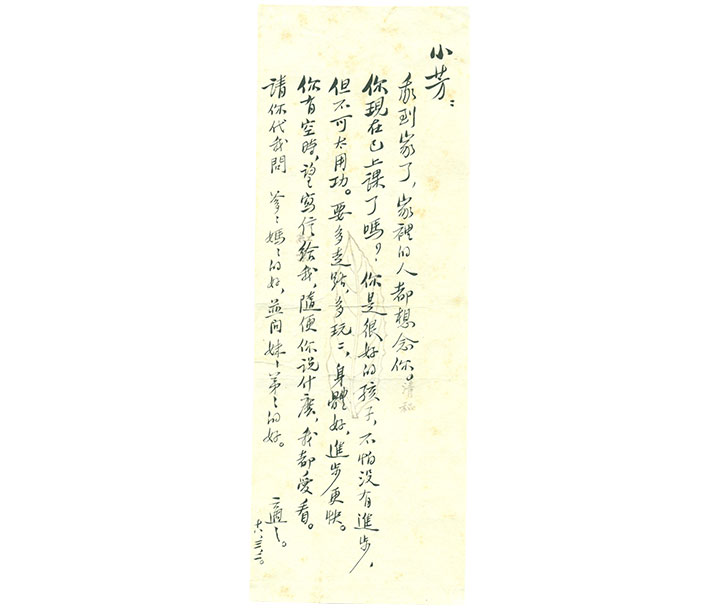 小芳：
我到家了，家裡的人都想念你。
你現在已上課了嗎？你是很好的孩子，不怕没有進步，
但不可太用功。要多走點，多玩二，身體好，進步更快。
你有空時，望寫信給我，隨便你说什麽，我都愛看。
請你代我問 爹〻媽〻的好，並问妹〻弟〻的好。
適之。
十八、三、二。